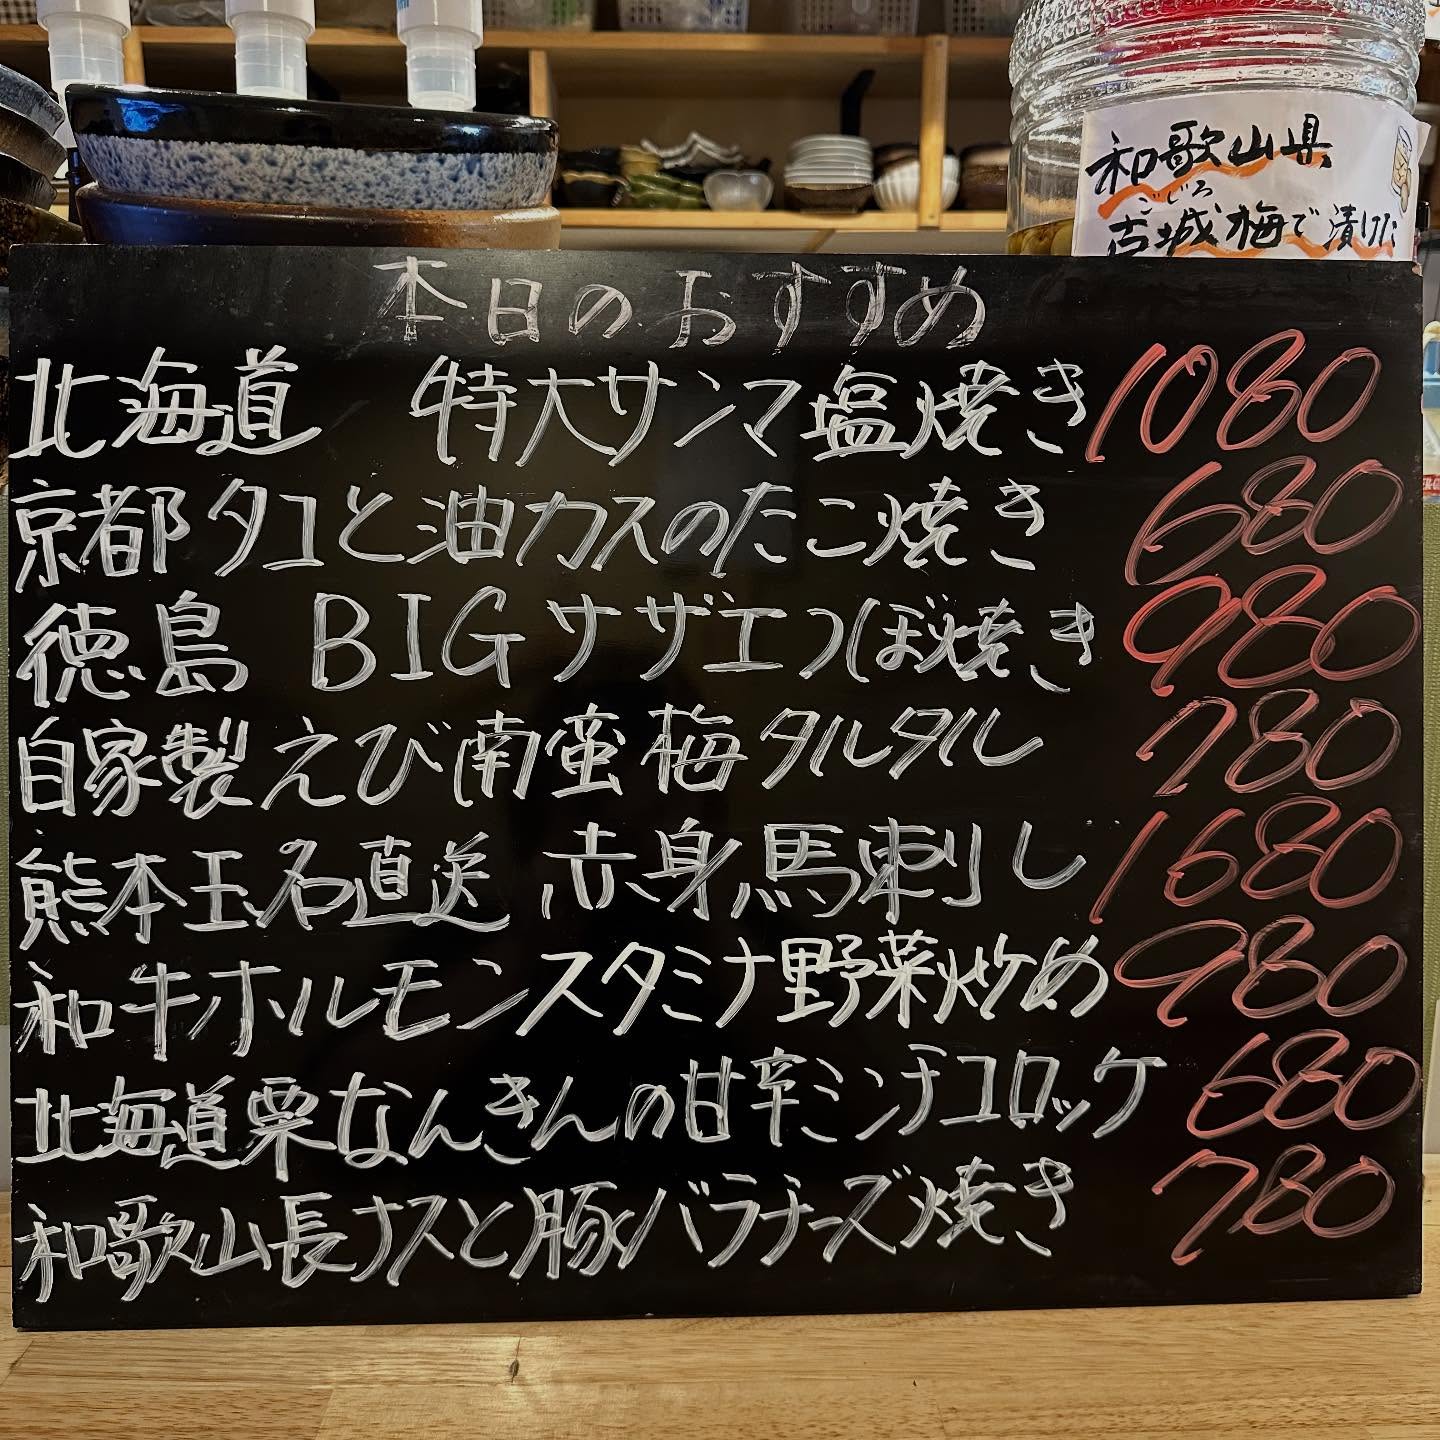 和歌山県
ごじろ
古城梅で漬けた
本日のおすすめ
北海道 特大サンマ塩焼き 1080
京都タコと油カスのたこ焼き 680
徳島 BIGサザエつぼ焼き 980
自家製えび南蛮梅タルタル 780
熊本玉名直送 赤身馬刺し 1680
和牛ホルモンスタミナ野菜炒め 980
北海道栗なんきんの甘辛ミンチコロッケ 680
和歌山長ナスと豚バラチーズ焼き 780